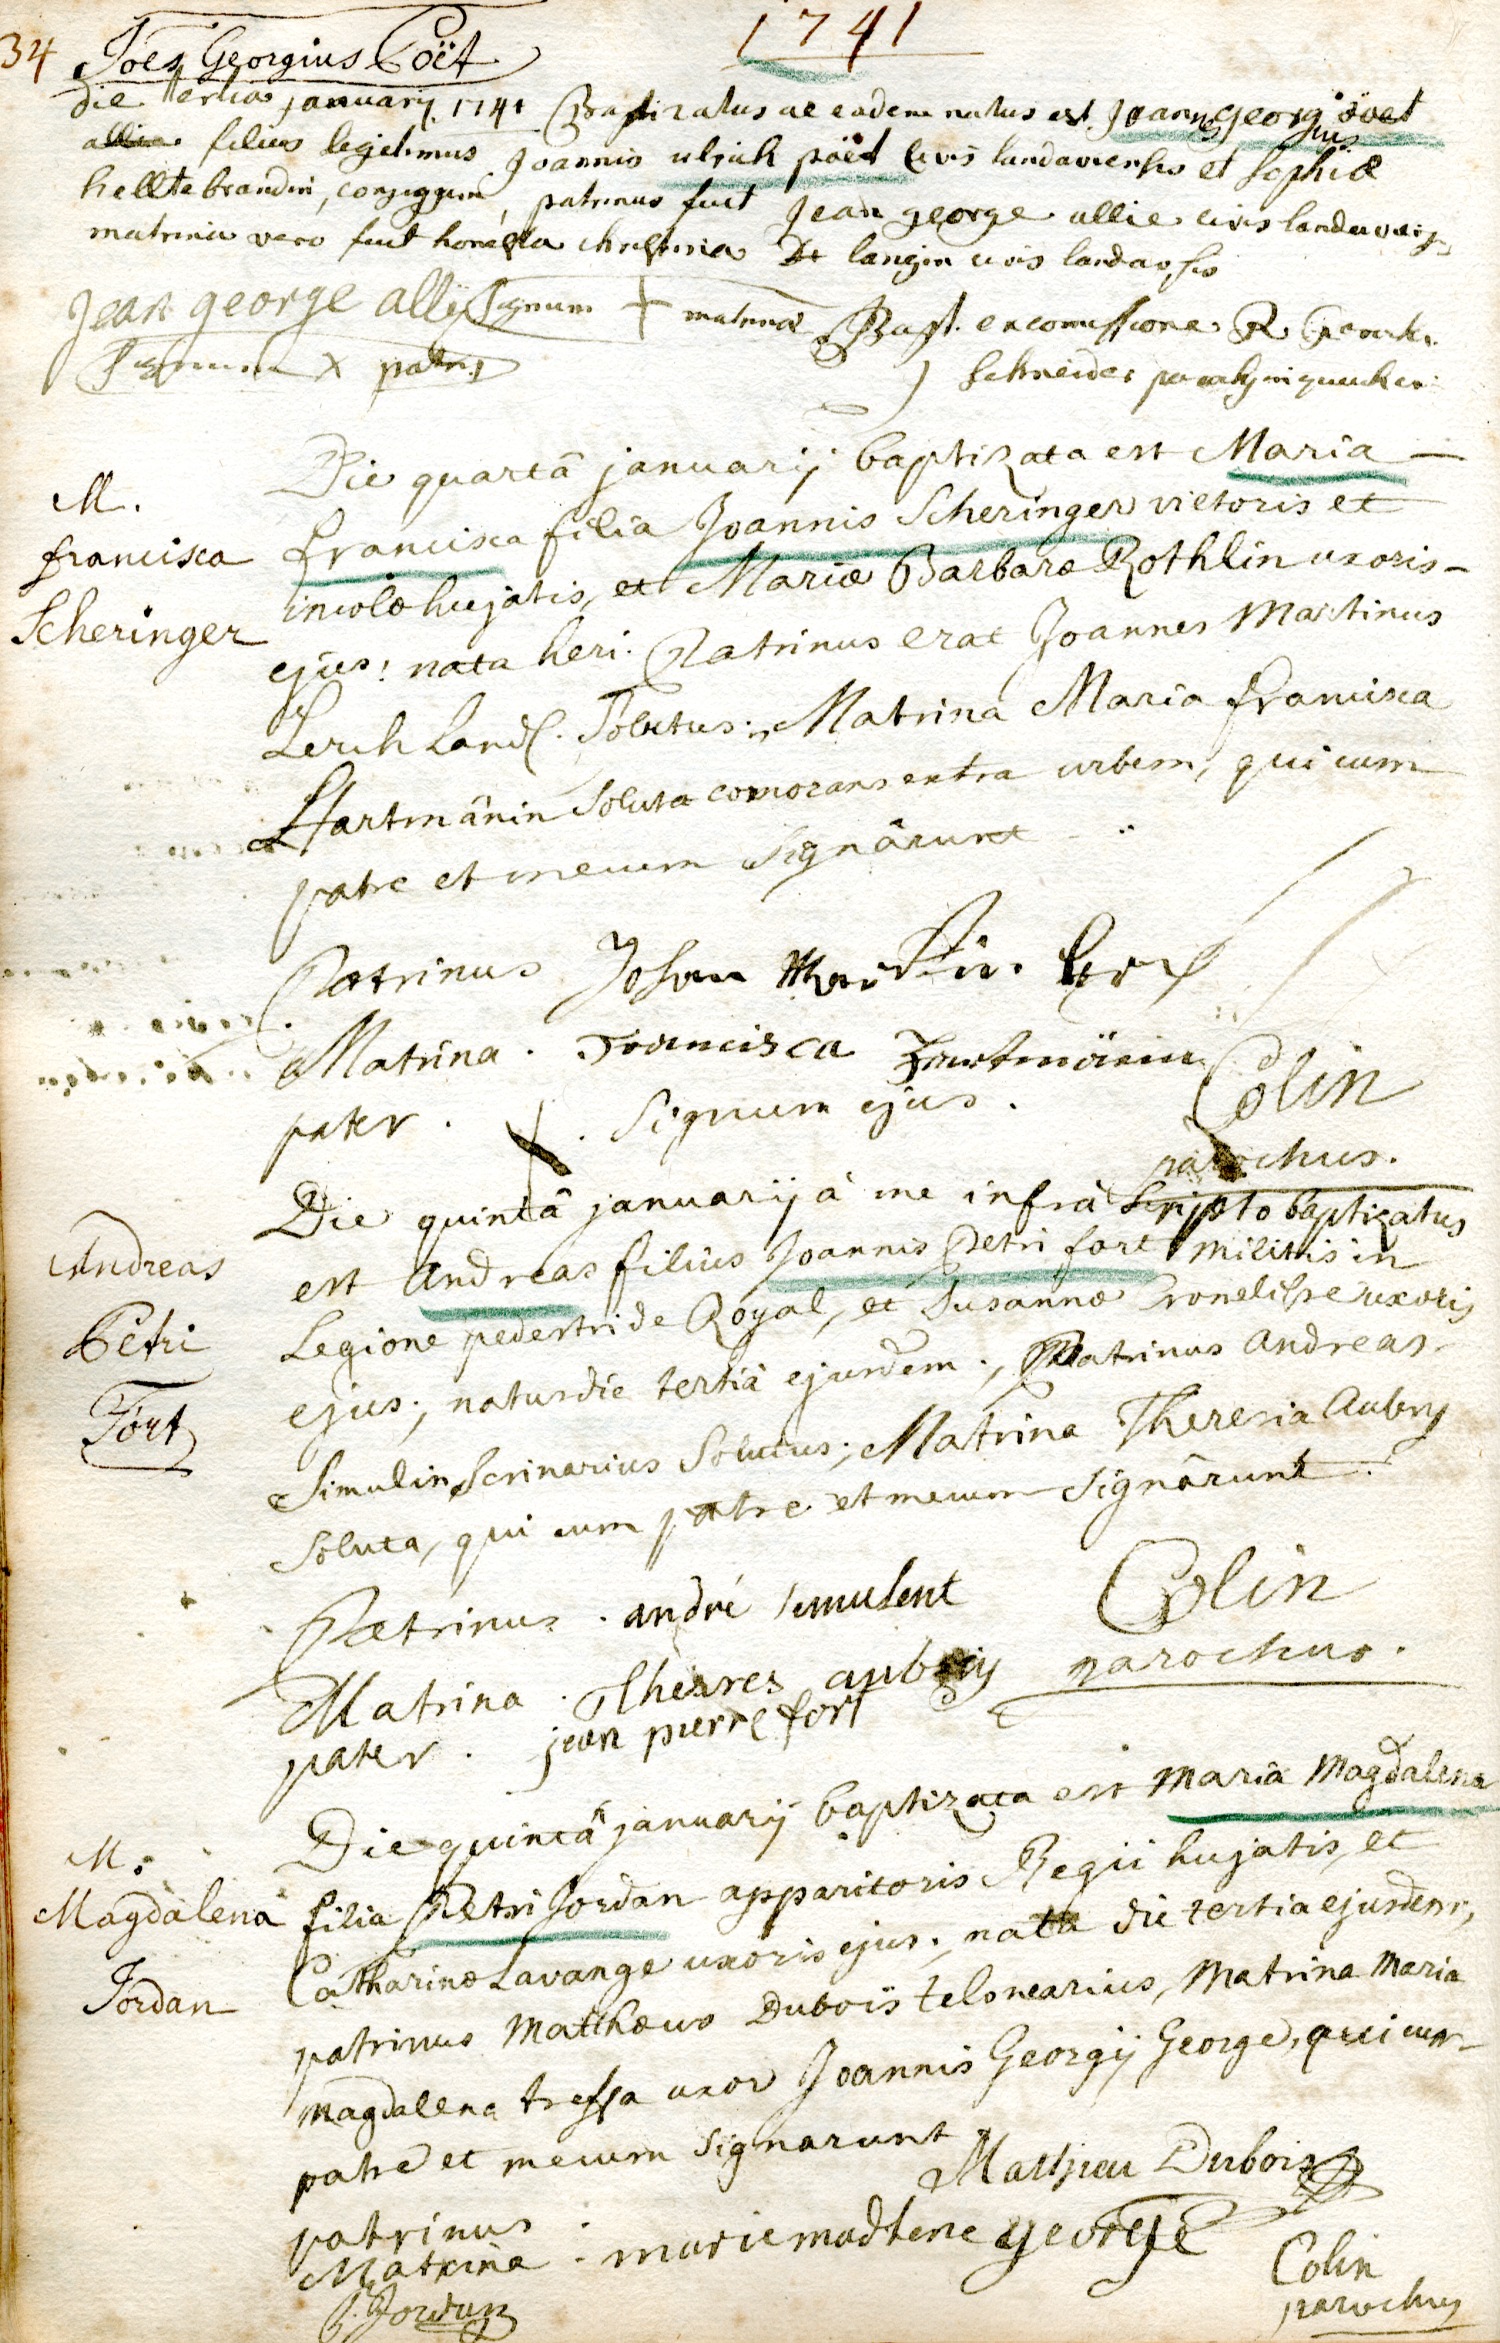 34 Joes Georgius Poët
1741
die tertia january 1741 Baptizatus ac eadem natus est Joannes georgius poet
allie filius legitimus Joannis ulrich poët civis landaviensis et sophiæ
helltebrandin, conjugum, patrinus fuit Jean george allie civis landaviensis
matrina vero fuit honesta christina langin civis landavsis
Jean george ally Signum + matrinæ Bapt. ex comissione R
Signum X patris
Schneider
Die quartâ januarij baptizata est Maria
M. francisca Scheringer
francisca filia Joannis Scheringer vietoris et
incolæ hujatis, et Mariæ Barbaræ Rothlin uxoris
ejus; nata heri. Patrinus erat Joannes Martinus
Lerch Land. Solutus; Matrina Maria francisca
Hartmänin Soluta comorans extra urbem, qui cum
patre et mecum Signârunt
Patrinus Johan Martin Lerch
Matrina. Francisca Hartmänin
pater. + . Signum ejus.
Colin
parochus.
Die quintâ januarij â me infrâ scripto baptizatus
Andreas Petri Fort
est andreas filius Joannis Petri fort militis in
Legione pedestri de Royal, et Susannæ uxoris
ejus; natus die tertiâ ejusdem; Patrinus andreas
Simulin Scrinarius Solutus; Matrina Theresia Aubry
Soluta, qui cum patre et mecum Signârunt.
Patrinus. andré semulent
Colin
Matrina. Therres aubriy
parochus.
pater. jean pierre fort
Die quintâ januarij baptizata est maria Magdalena
M. Magdalena Jordan
filia Petri Jordan apparitoris Regii hujatis, et
Catharinæ Lavange uxoris ejus; nata die tertia ejusdem,
patrinus Matthæus Dubois telonearius, Matrina Maria
Magdalena tressa uxor Joannis Georgij George, qui cum
patre et mecum Signarunt
patrinus. Mathieu Dubois
Matrina. marie madlene george
P. Jordan
Colin
parochus